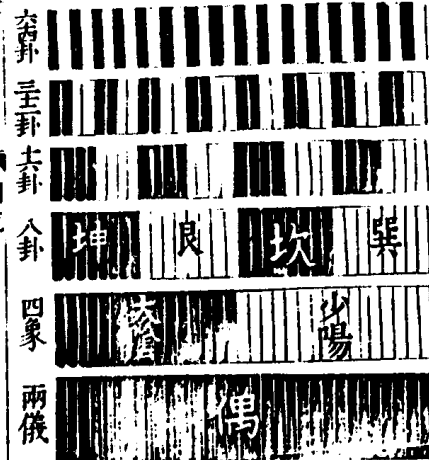 六十四卦
三十二卦
十六卦
八卦 坤 艮 坎 巽
四象 太陰 少陽
兩儀 偶